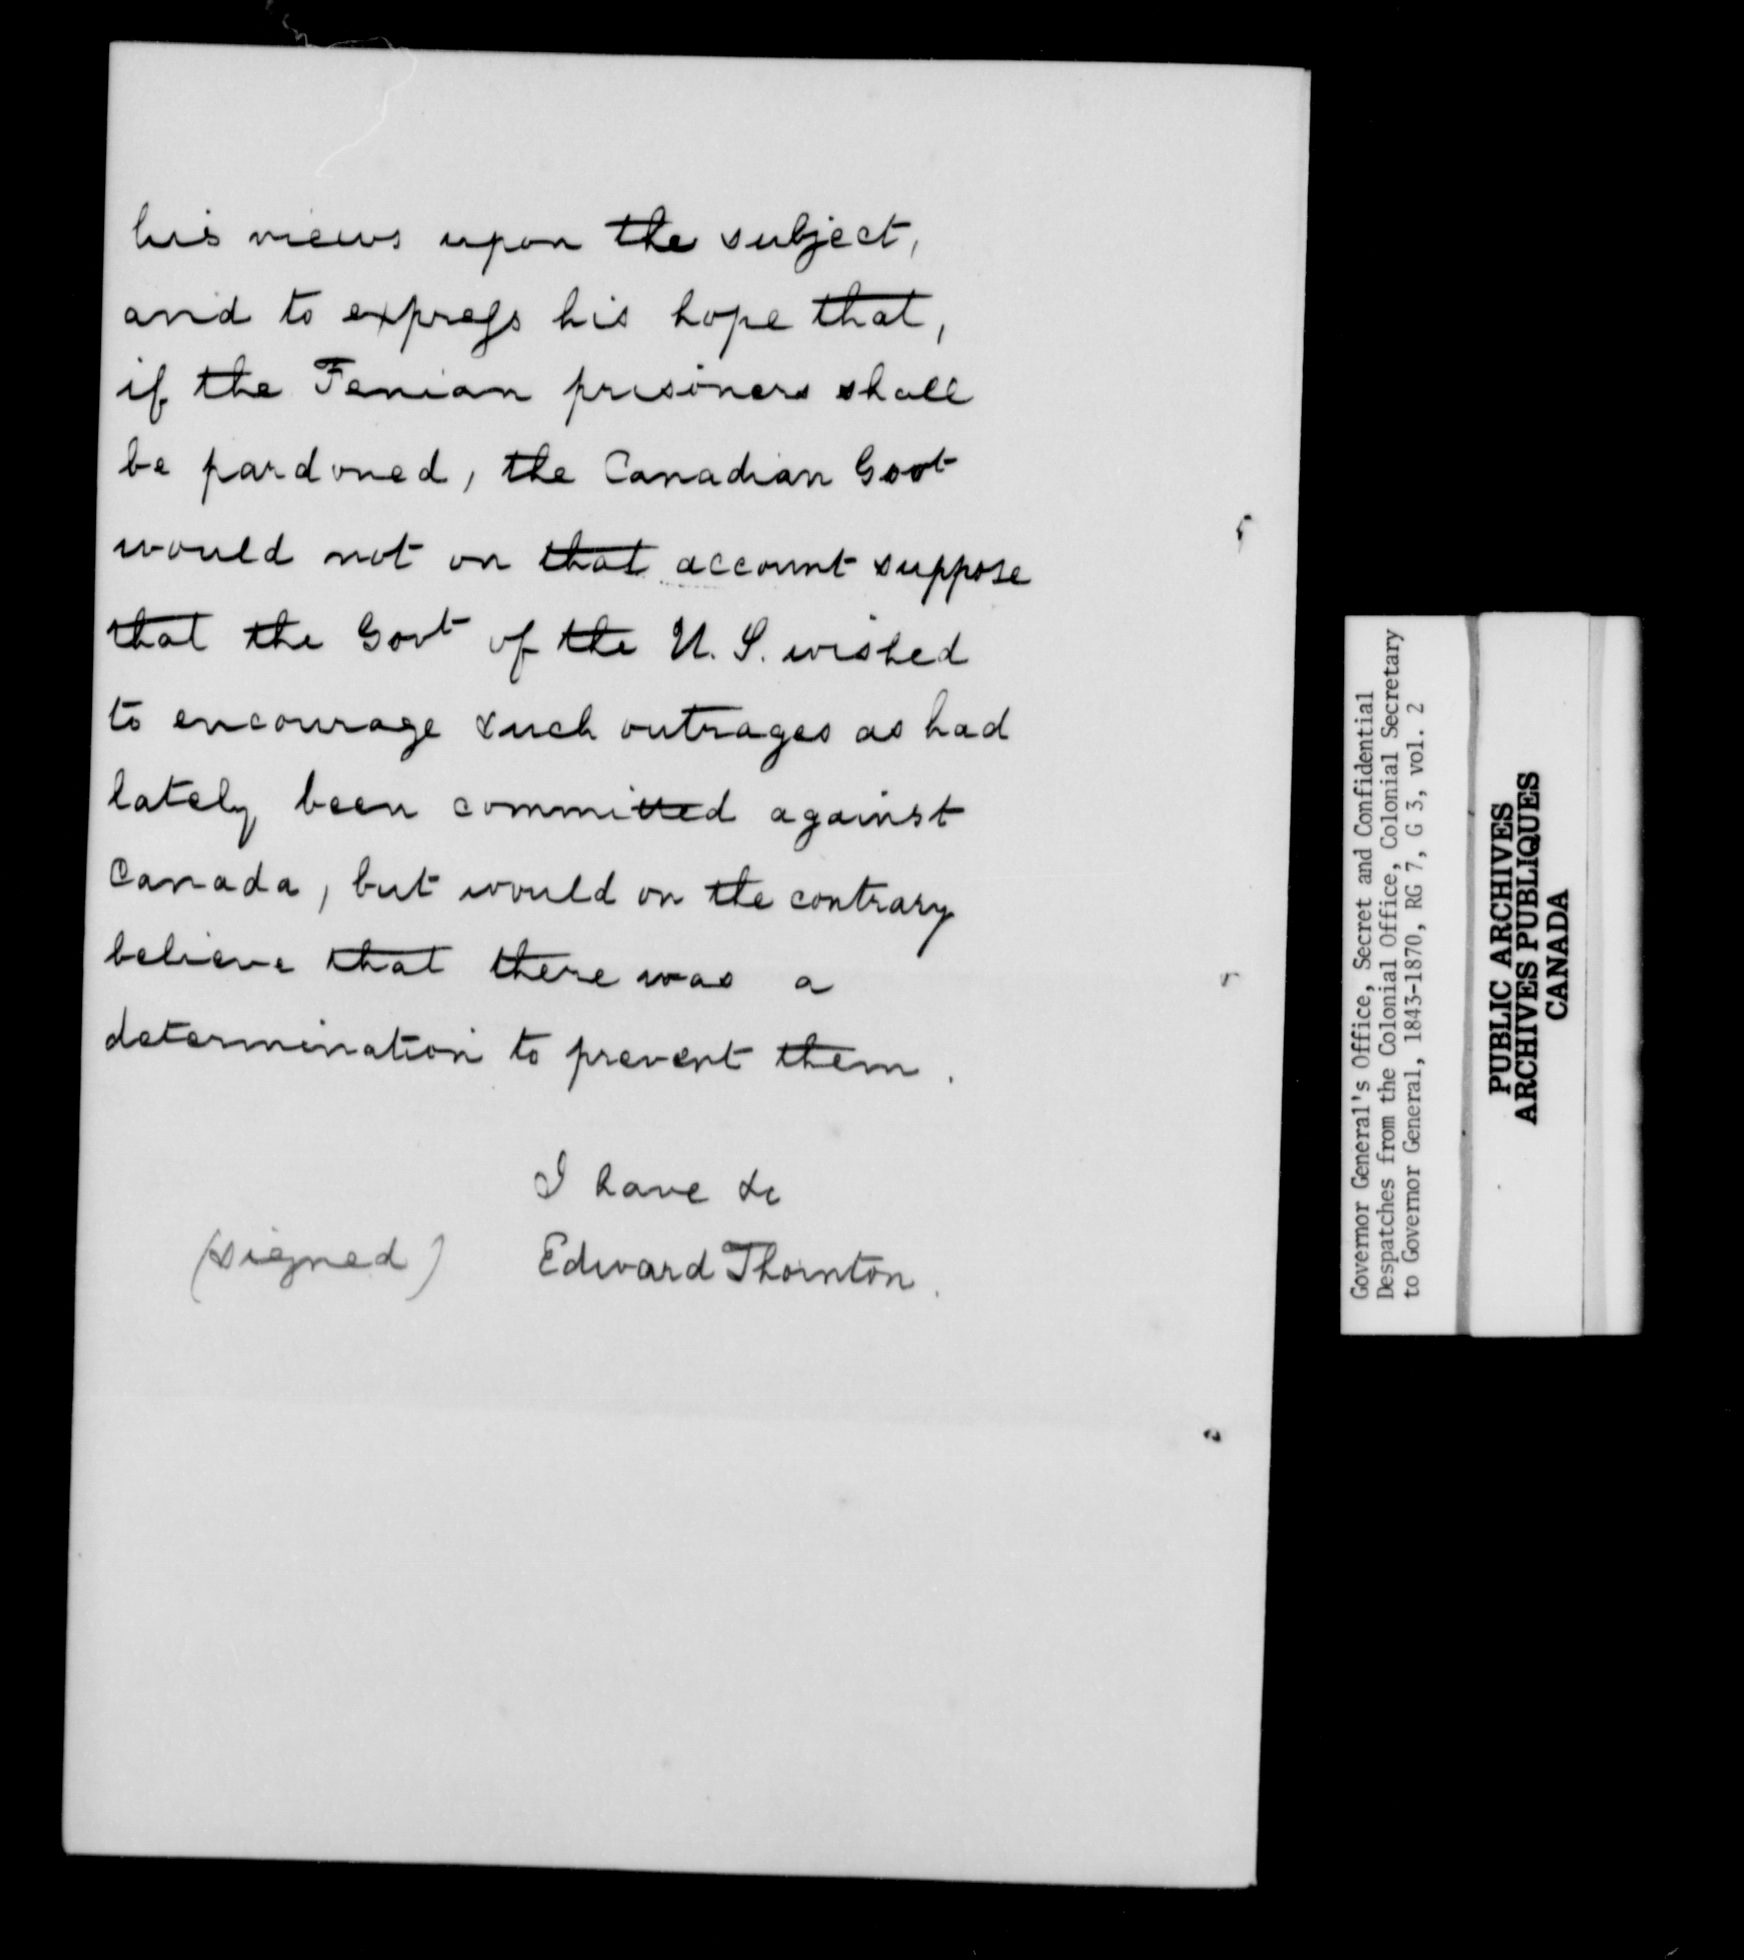 his views upon the subject,
and to express his hope that,
if the Fenian prisoners shall
be pardoned, the Canadian Govt
would not on that account suppose
that the Govt of the U. S. wished
to encourage such outrages as had
lately been committed against
Canada, but would on the contrary
believe that there was a
determination to prevent them.
I have &c
(signed) Edward Thornton.
Governor General's Office, Secret and Confidential
Despatches from the Colonial Office, Colonial Secretary
to Governor General, 1843-1870, RG 7, G 3, vol. 2
PUBLIC ARCHIVES
ARCHIVES PUBLIQUES
CANADA